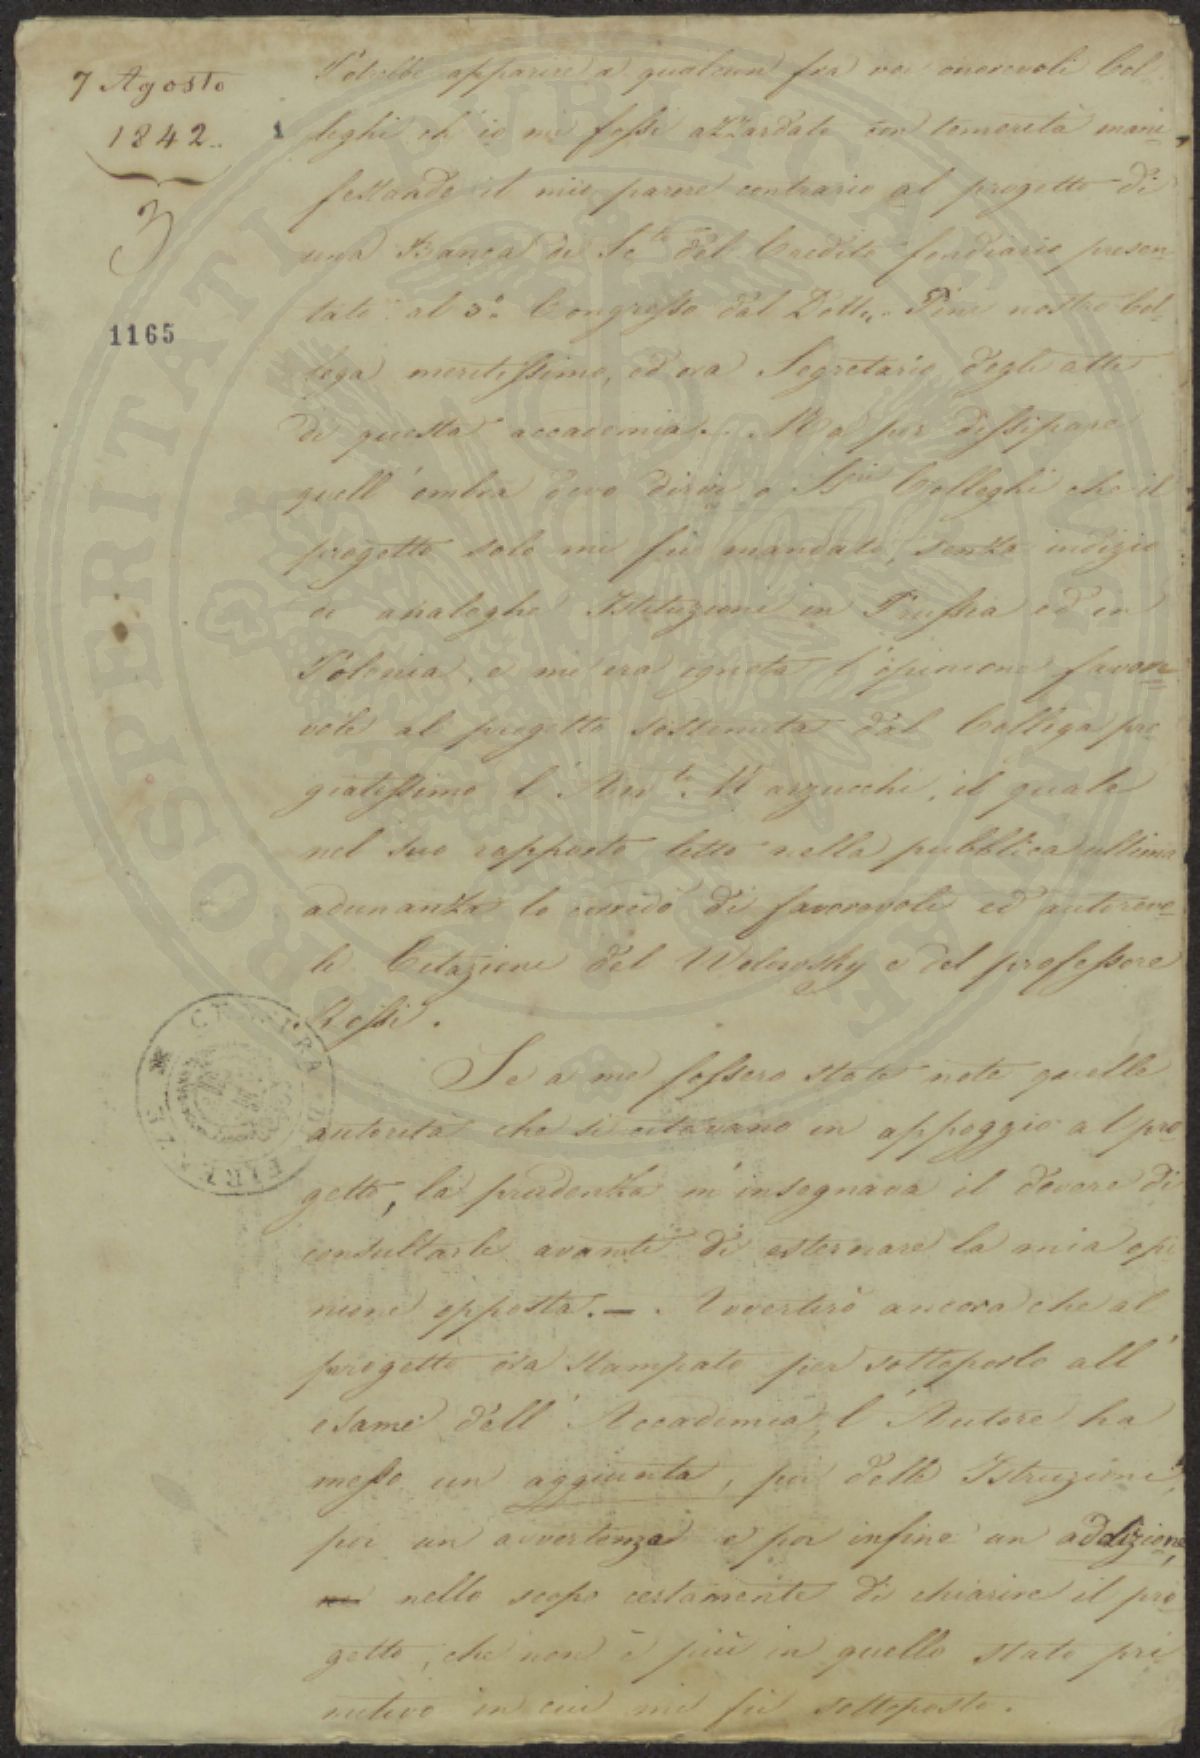 7 Agosto
1842.
3
1165
1
Potrebbe apparire a qualcun fra voi onorevoli Col-
leghi ch'io mi fossi azzardato con temerità mani
festando il mio parere contrario al progetto di
una Banca di Sc.to del Credito fondiario presen-
tato al 3.o Congresso dal Dott. Pini nostro Col-
lega meritissimo, ed ora Segretario degli atti
di questa accademia. Ma per dissipare
quell'ombra devo dirvi o Sri Colleghi che il
progetto solo mi fù mandato, senza indizio
di analoghe Istituzioni in Prussia ed in
Polonia, e mi era ignota l'opinione favore
vole al progetto sostenuta dal Collega pre
giatissimo l'Avv.to Marzucchi, il quale
nel suo rapporto letto nella pubblica ultima
adunanza lo corredò di favorevoli ed autorevo-
li Citazione del Wolowsky e del professore
Rossi.
Se a me fossero state note quelle
autorità che si citavano in appoggio al pro-
getto, la prudenza m'insegnava il dovere di
consultarle avanti di esternare la mia opi
nione opposta. — . Avvertirò ancora che al
progetto ora stampato per sottoporlo all'
esame dell'Accademia, l'Autore ha
messo un aggiunta, poi delle Istruzioni,
poi un avvertenza e poi infine un addizione,
nello scopo certamente di chiarire il pro-
getto, che non è più in quello stato pri
mitivo in cui mi fù sottoposto.
PROSPERITATI PVBLICAE AVGENDAE
CAMERA DI COM
FIRENZE